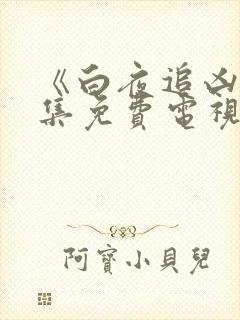 《白夜追凶
集免費電視
阿寶小貝兒